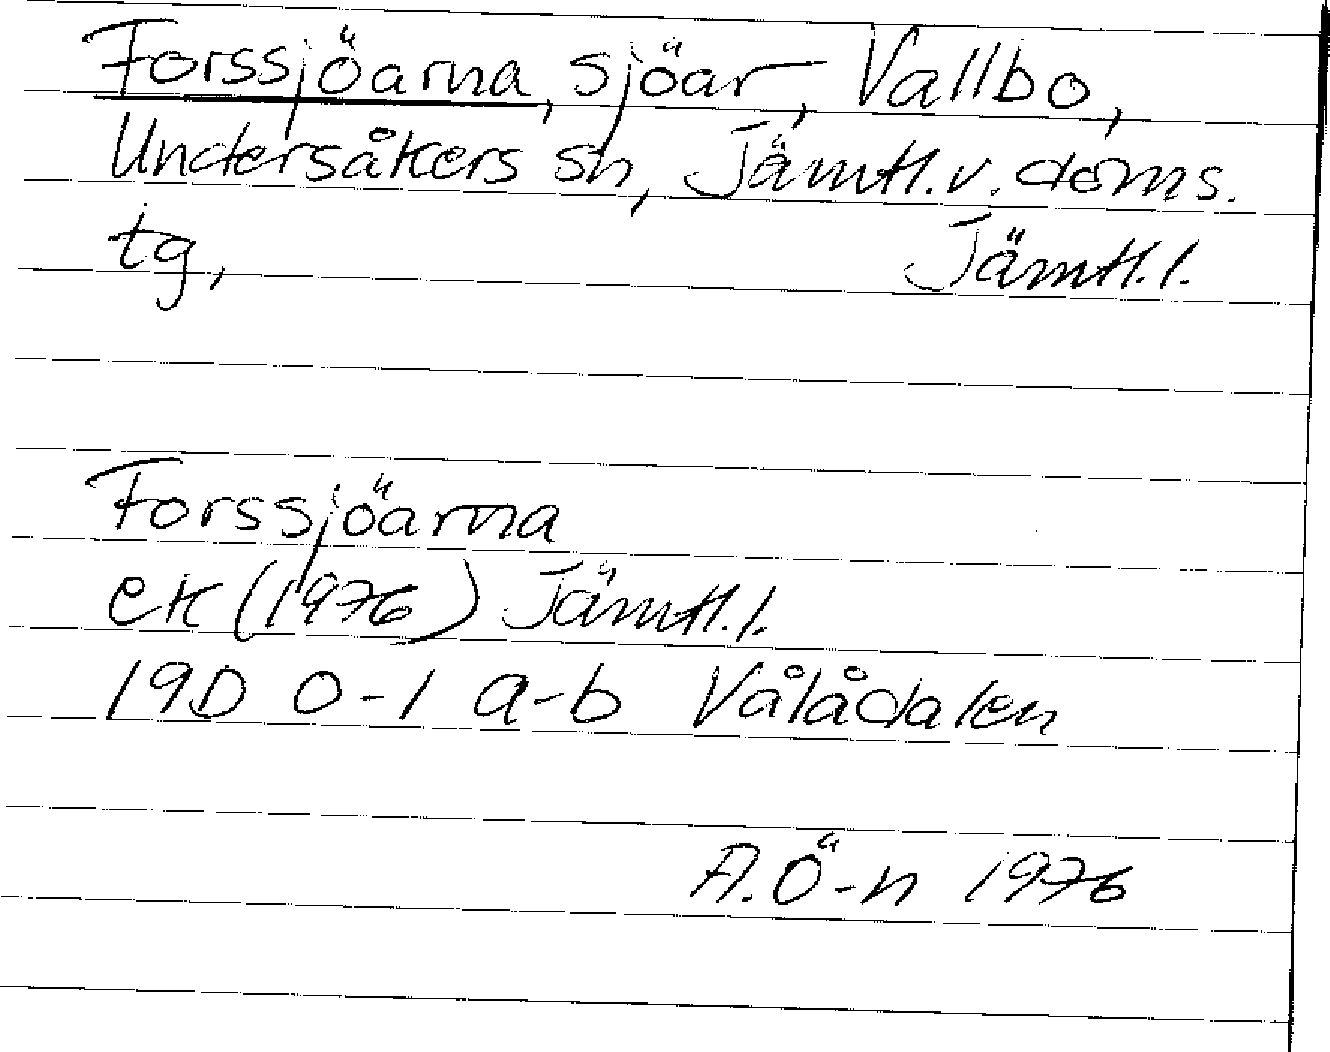 Forssjöarna, sjöar, Vallbo,
Undersåkers sn, Jämtl.v.doms.
tg, Jämtl.l.
Forssjöarna
ek (1976) Jämtl.l.
19D 0-1 a-b Vålådalen
A.Ö-n 1976